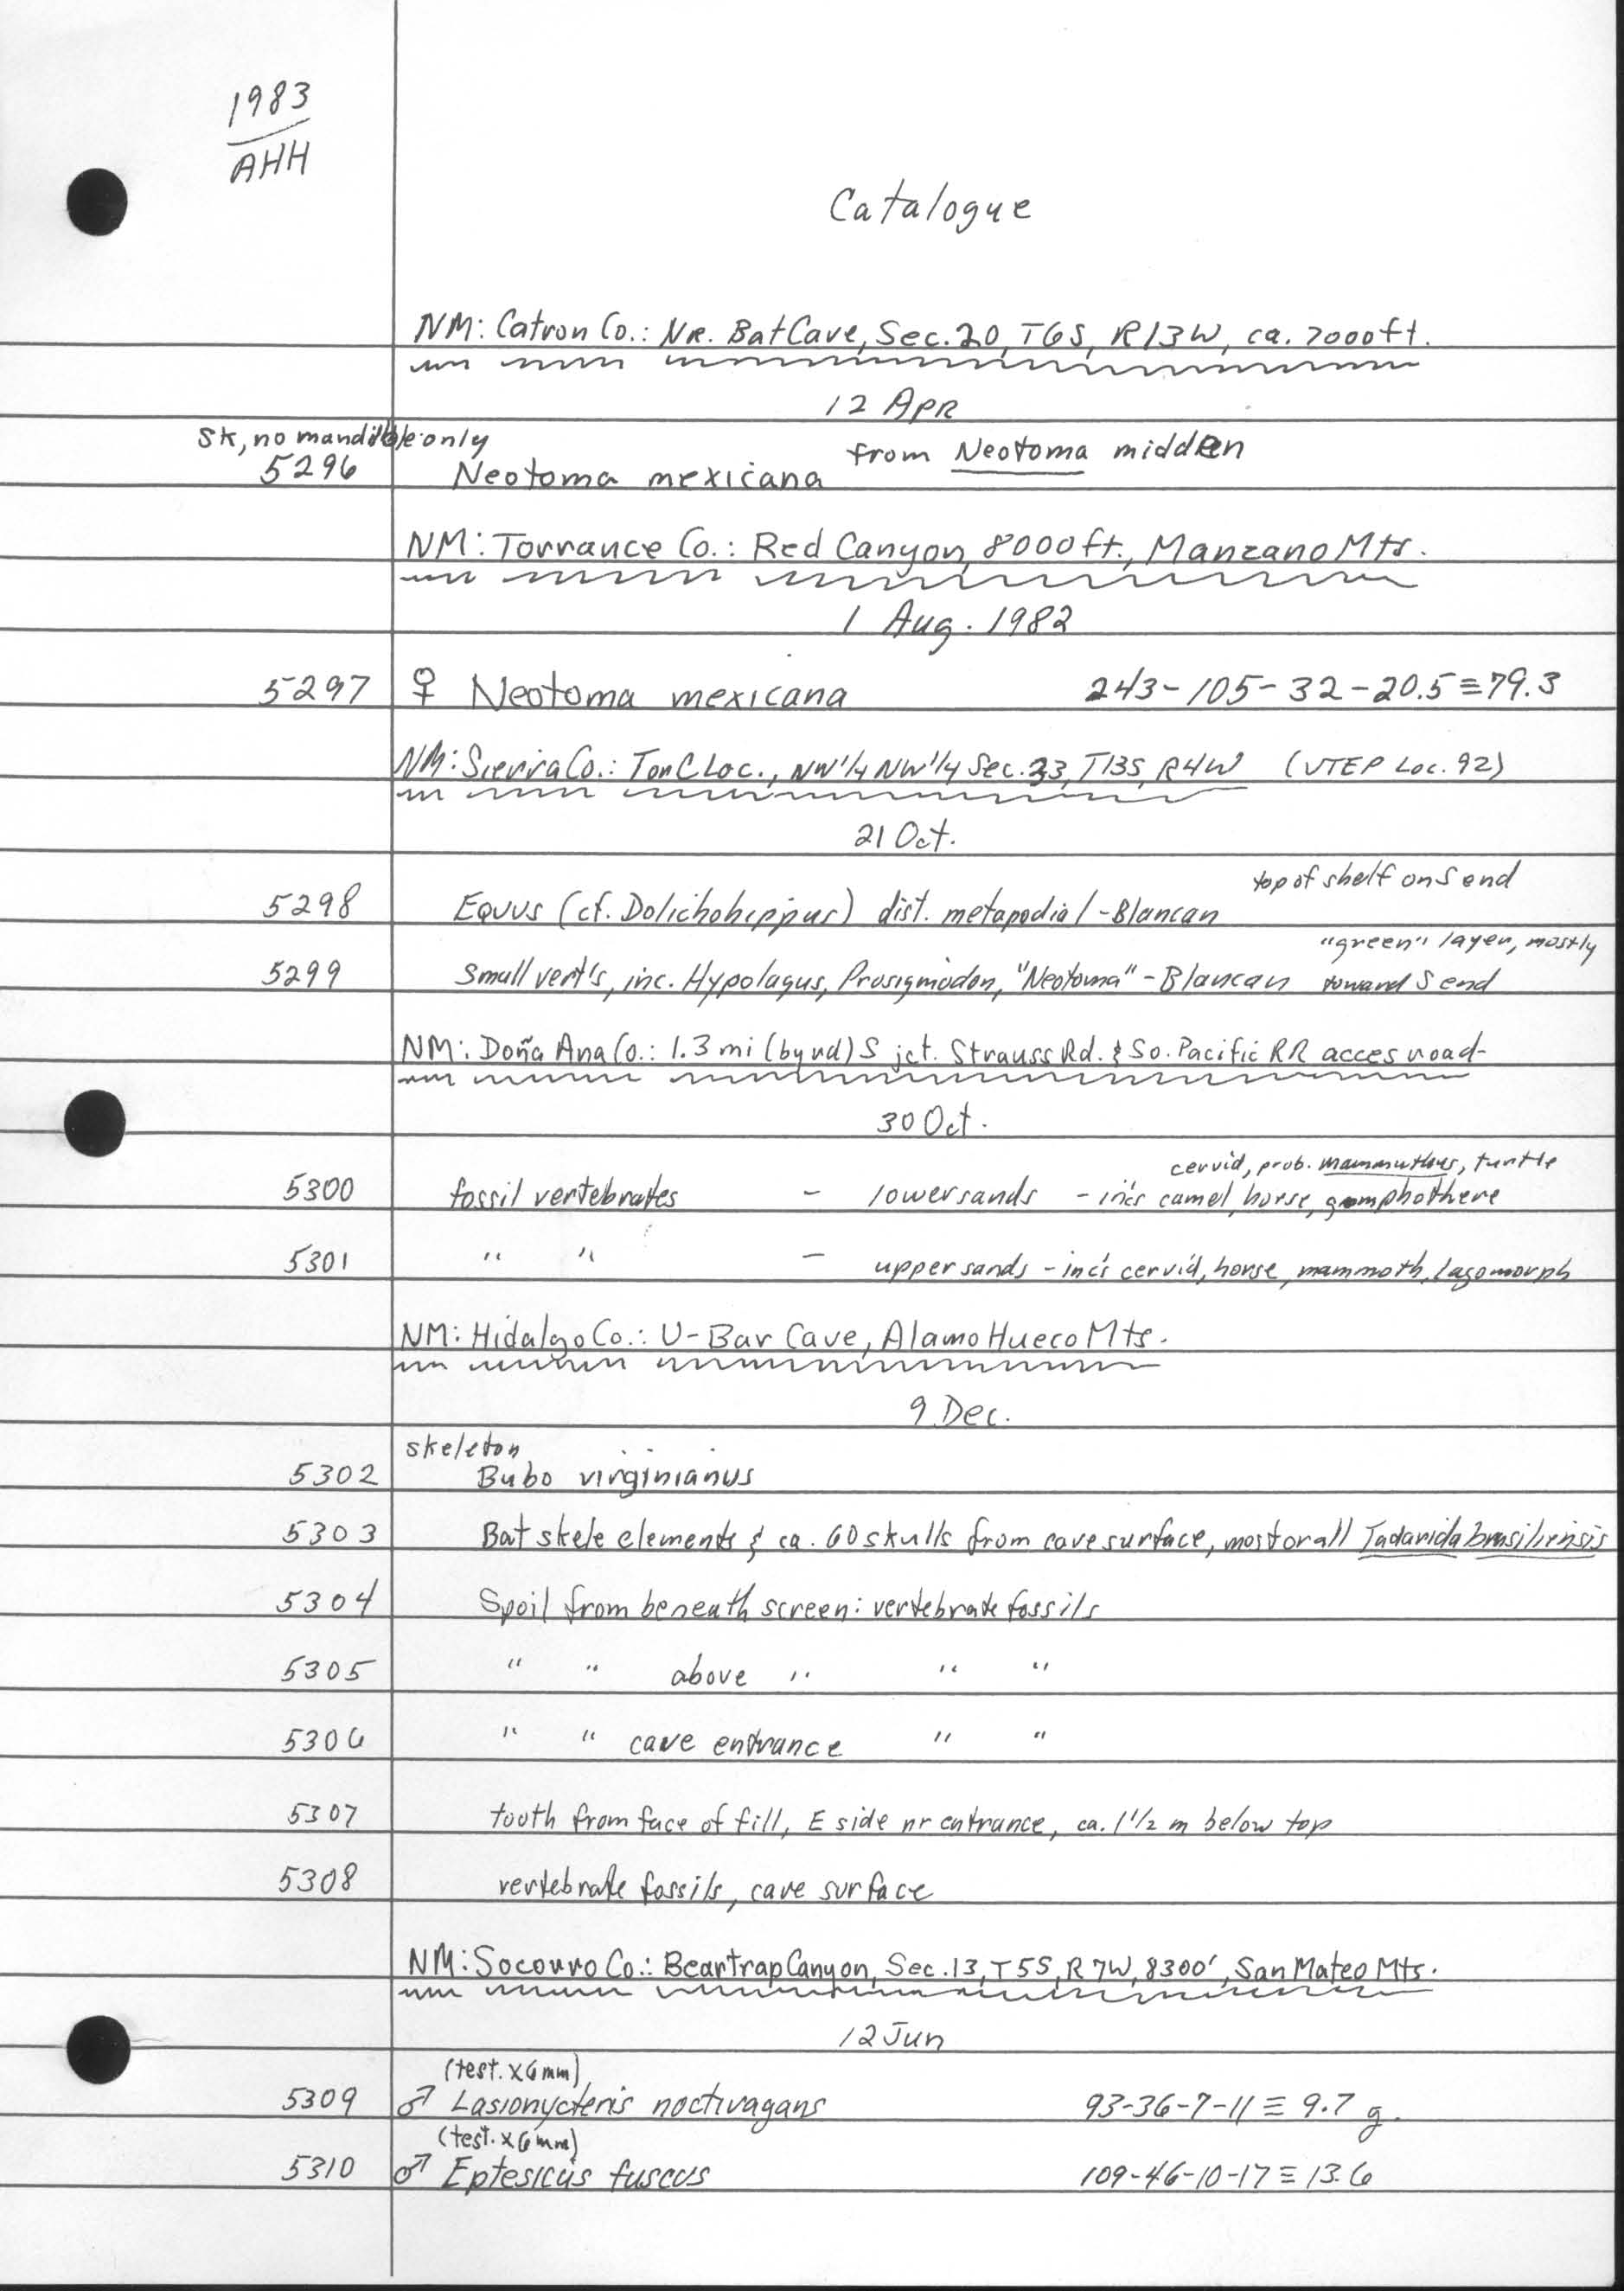 1983
AHH
Catalogue
NM: Catron Co.: Nr. Bat Cave, Sec. 20, T6S, R13W, ca. 7000 ft.
12 Apr
Sk, no mandible only
from Neotoma midden
5296 Neotoma mexicana
NM: Torrance Co.: Red Canyon, 8000 ft., Manzano Mts.
1 Aug. 1982
5297 ♀ Neotoma mexicana 243-105-32-20.5≡79.3
NM: Sierra Co.: TonC Loc., NW 1/4 NW 1/4 Sec. 33, T13S, R4W (UTEP Loc. 92)
21 Oct.
top of shelf on S end
5298 Equus (cf. Dolichohippus) dist. metapodial - Blancan
"green" layer, mostly
5299 Small vert's, inc. Hypolagus, Prosigmodon, "Neotoma" - Blancan toward S end
NM: Doña Ana Co.: 1.3 mi (by rd) S jct. Strauss Rd. & So. Pacific RR acces road-
30 Oct.
cervid, prob. mammuthus, turtle
5300 fossil vertebrates - lower sands - inc's camel, horse, gomphothere
5301 " " - upper sands - inc's cervid, horse, mammoth, lagomorph
NM: Hidalgo Co.: U-Bar Cave, Alamo Hueco Mts.
9 Dec.
skeleton
5302 Bubo virginianus
5303 Bat skele elements & ca. 60 skulls from cave surface, most or all Tadarida brasiliensis
5304 Spoil from beneath screen: vertebrate fossils
5305 " " above " " "
5306 " " cave entrance " "
5307 tooth from face of fill, E side nr entrance, ca. 1 1/2 m below top
5308 vertebrate fossils, cave surface
NM: Socorro Co.: Beartrap Canyon, Sec. 13, T5S, R7W, 8300', San Mateo Mts.
12 Jun
(test. x 6 mm)
5309 ♂ Lasionycteris noctivagans 93-36-7-11 ≡ 9.7 g.
(test. x 6 mm)
5310 ♂ Eptesicus fuscus 109-46-10-17 ≡ 13.6